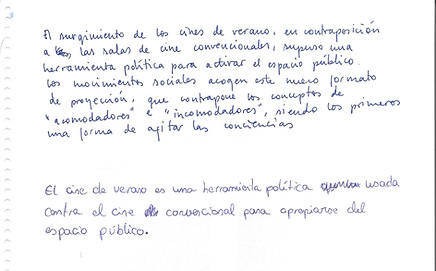 El surgimiento de los cines de verano, en contraposición
a las salas de cine convencionales, supuso una
herramienta política para activar el espacio público.
Los movimientos sociales acogen este nuevo formato
de proyección, que contrapone los conceptos de
"acomodadores" e "incomodadores", siendo los primeros
una forma de agitar las conciencias
El cine de verano es una herramienta política usada
contra el cine convencional para apropiarse del
espacio público.